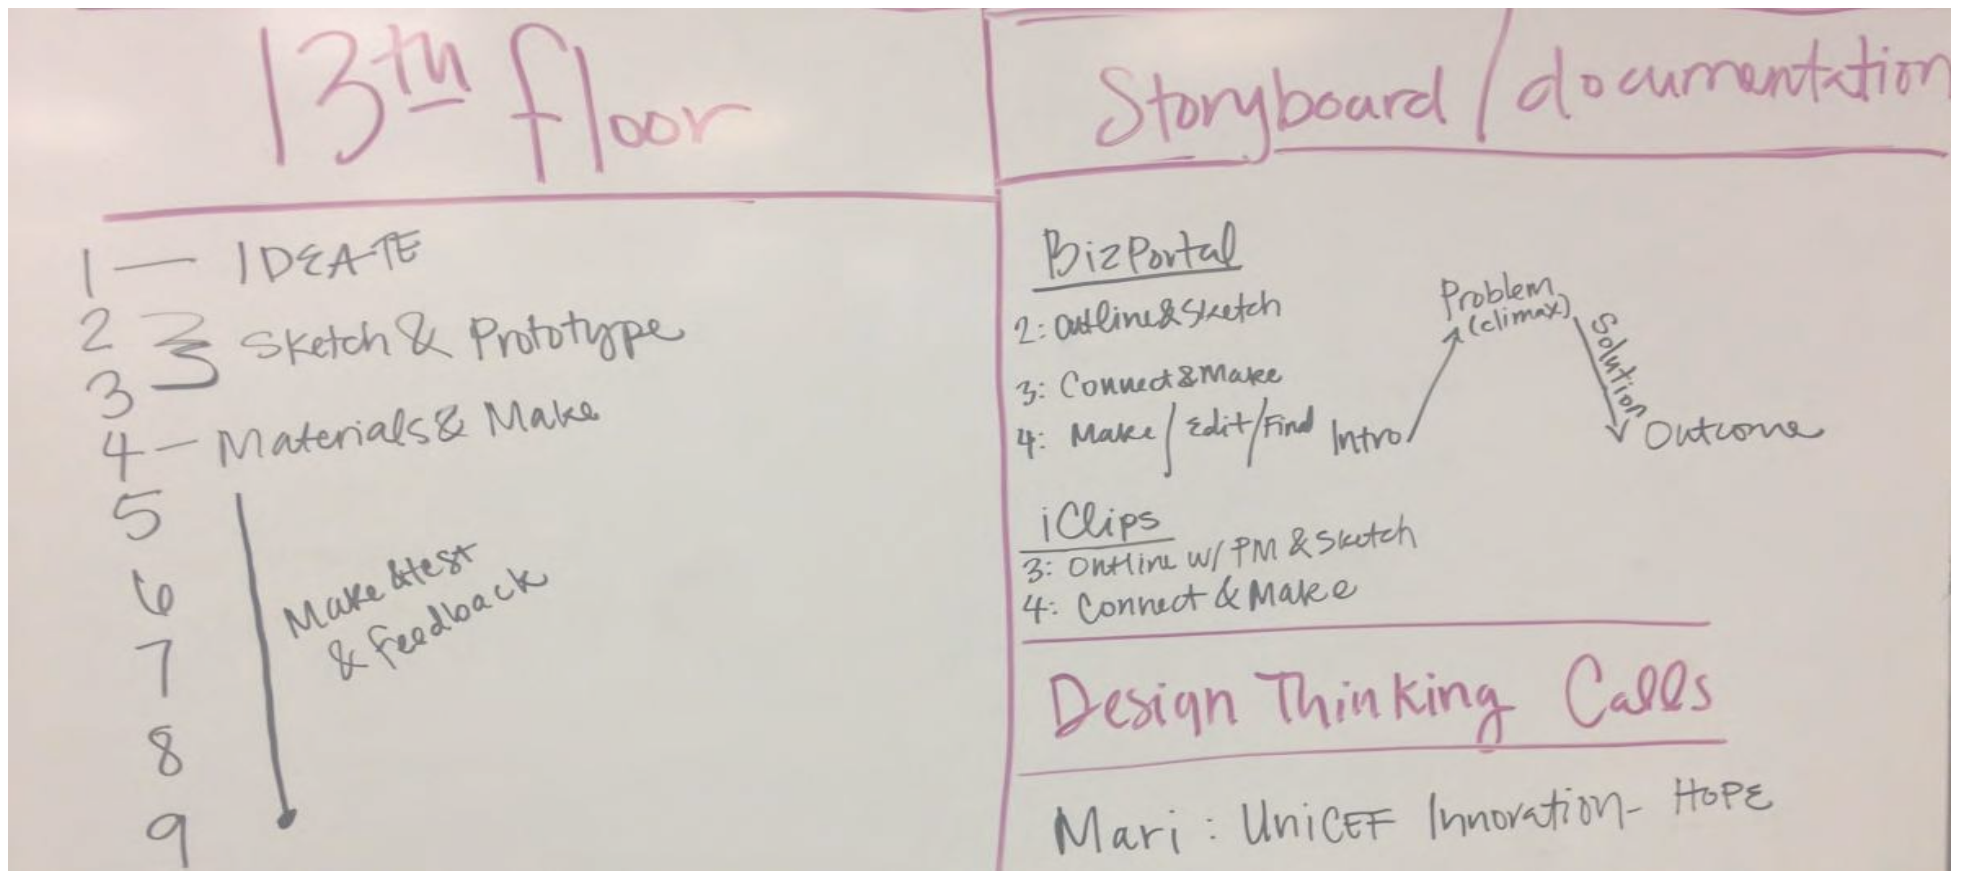 13th floor
1 — IDEATE
2
3
Sketch & Prototype
4 — Materials & Make
5
6
7
8
9
Make & test
& Feedback
Storyboard / documentation
BizPortal
2: Outline & Sketch
3: Connect & Make
4: Make / Edit / Find
Intro
Problem
(climax)
Solution
Outcome
iClips
3: Outline w/ PM & Sketch
4: Connect & Make
Design Thinking Calls
Mari : UniCEF Innovation - HOPE